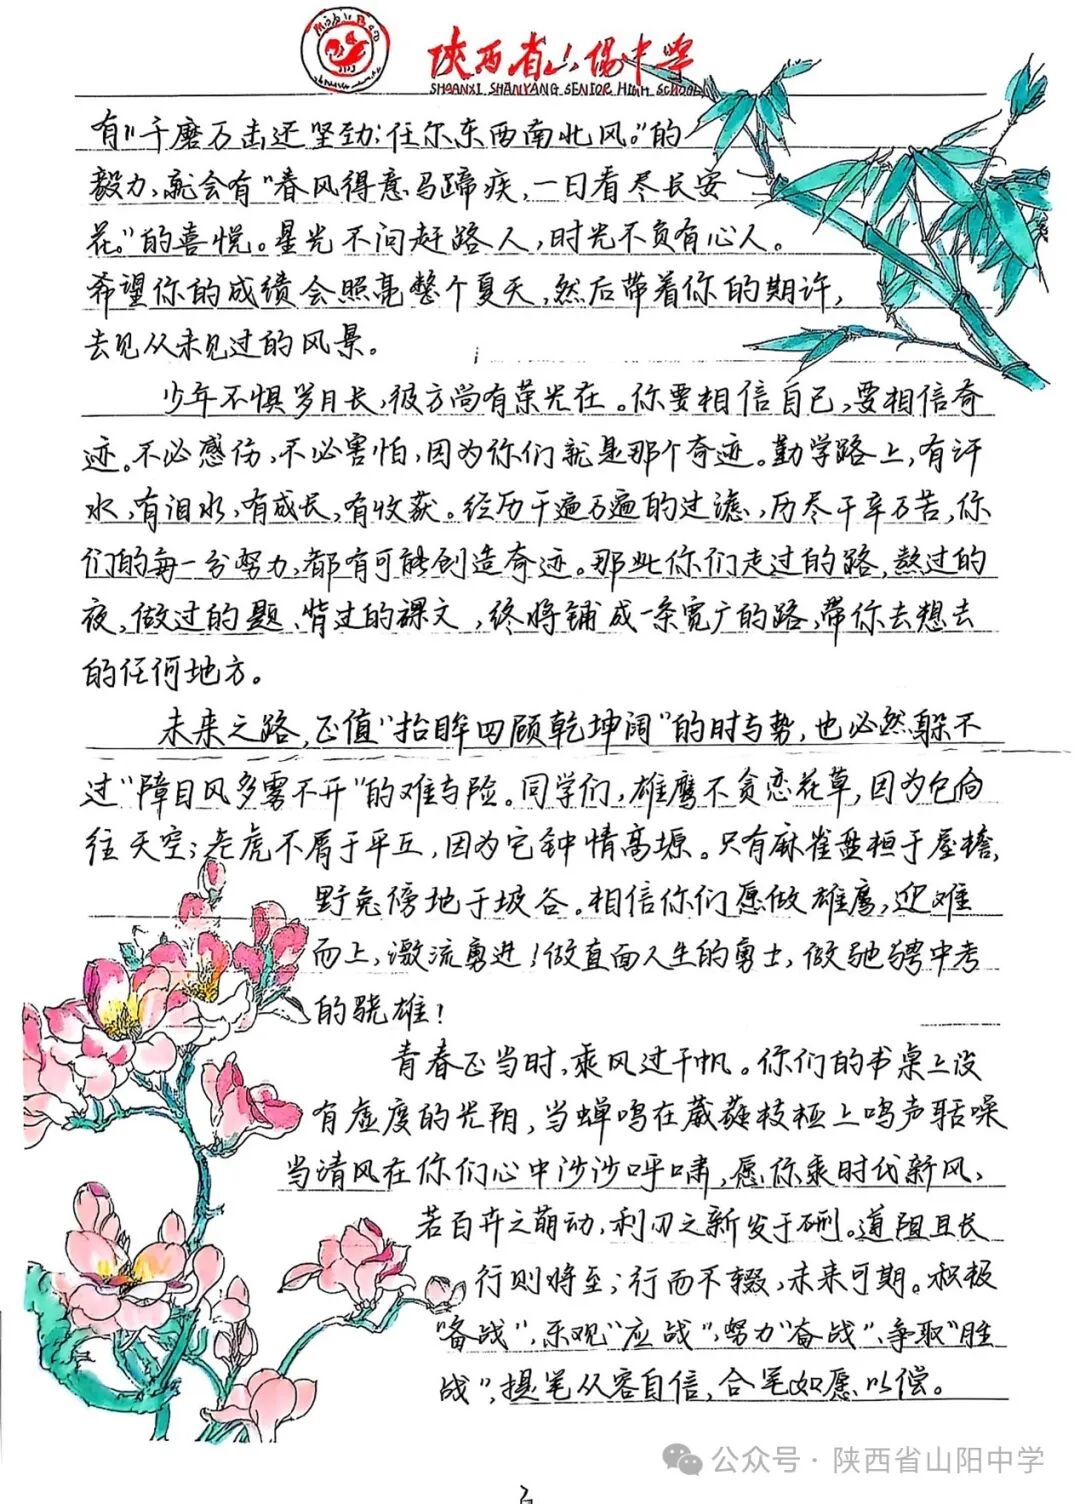 陕西省山阳中学
SHAANXI SHANYANG SENIOR HIGH SCHOOL
有"千磨万击还坚劲,任尔东西南北风。"的
毅力,就会有"春风得意马蹄疾,一日看尽长安
花。"的喜悦。星光不问赶路人,时光不负有心人。
希望你的成绩会照亮整个夏天,然后带着你的期许,
去见从未见过的风景。
少年不惧岁月长,彼方尚有荣光在。你要相信自己,要相信奇
迹。不必感伤,不必害怕,因为你们就是那个奇迹。勤学路上,有汗
水,有泪水,有成长,有收获。经历千遍万遍的过滤,历尽千辛万苦,你
们的每一分努力,都有可能创造奇迹。那些你们走过的路,熬过的
夜,做过的题、背过的课文,终将铺成一条宽广的路,带你去想去
的任何地方。
未来之路,正值"抬眸四顾乾坤阔"的时与势,也必然躲不
过"障目风多雾不开"的难与险。同学们,雄鹰不贪恋花草,因为它向
往天空;老虎不屑于平丘,因为它钟情高塬。只有麻雀盘桓于屋檐,
野兔傍地于坡谷。相信你们愿做雄鹰,迎难
而上,激流勇进!做直面人生的勇士,做驰骋中考
的骁雄!
青春正当时,乘风过千帆。你们的书桌上没
有虚度的光阴,当蝉鸣在葳蕤枝桠上鸣声聒噪
当清风在你们心中沙沙呼啸,愿你乘时代新风,
若百卉之萌动,利刃之新发于硎。道阻且长
行则将至;行而不辍,未来可期。积极
"备战"、乐观"应战"、努力"奋战"、争取"胜
战",提笔从容自信,合笔如愿以偿。
公众号·陕西省山阳中学